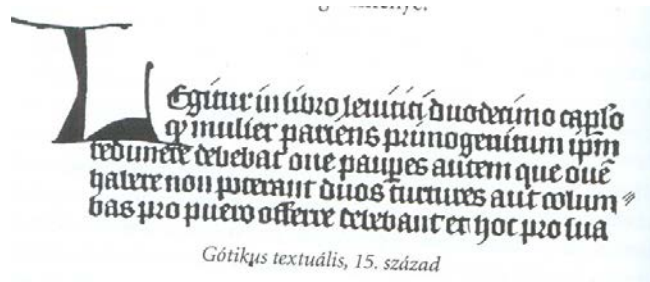 LEgitur in libro leuitici duodecimo caplo
q mulier pariens primogenitum ipm
redimere debebat oue paupes autem que ouē
habere non poterant duos turtures aut colum
bas pro puero offerre debebant et hoc pro sua
Gótikus textuális, 15. század